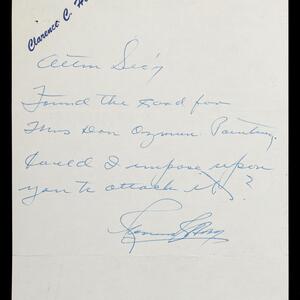 Clarence C.
Attn Sec'y
Found the card for
Mrs Don Ozmun. Painting.
Could I impose upon
you to attach it?